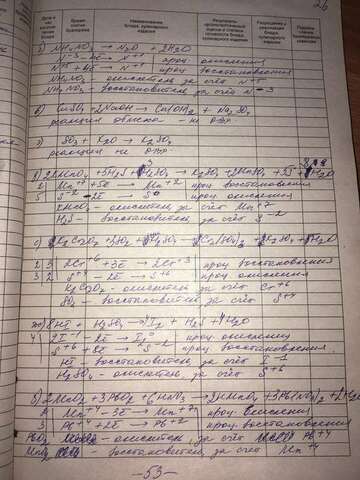 26
Дата и час
Время снятия
Наименование блюда, кулинарного изделия
Разрешение к реализации блюда, кулинарного изделия
б) NH4NO3 → N2O + 2H2O
N-3 - 4ē → N+1 проц окисления
N+5 + 4ē → N+1 проц восстановления
NH4NO3 - окислитель за счёт N+5
NH4NO3 - восстановитель, за счёт N-3
в) CuSO4 + 2NaOH → Cu(OH)2 + Na2SO4
реакция обмена - не ОВР
г) SO3 + K2O → K2SO4
реакция не ОВР
д) 2KMnO4 + 5H2S + 3H2SO4 → K2SO4 + 2MnSO4 + 5S + 8H2O
2 Mn+7 + 5ē → Mn+2 проц восстановления
5 S-2 - 2ē → S0 проц окисления
KMnO4 - окислитель за счёт Mn+7
H2S - восстановитель, за счёт S-2
е) K2Cr2O7 + 3SO2 + H2SO4 → Cr2(SO4)3 + K2SO4 + H2O
2 3 2Cr+6 + 3ē → 2Cr+3 проц восстановления
3 2 S+4 - 2ē → S+6 проц окисления
K2Cr2O7 - окислитель за счёт Cr+6
SO2 - восстановитель за счёт S+4
ж) 8HI + H2SO4 → 4I2 + H2S + 4H2O
4 2I-1 - 2ē → I2 0 проц окисления
S+6 + 8ē → S-2 проц восстановления
HI - восстановитель за счёт I-1
H2SO4 - окислитель, за счёт S+6
2MnO2 + 3PbO2 + 6HNO3 → 2HMnO4 + 3Pb(NO3)2 + 2H2O
2 Mn+4 - 3ē → Mn+7 проц окисления
3 Pb+4 + 2ē → Pb+2 проц восстановления
PbO2 - окислитель, за счёт Pb+4
MnO2 - восстановитель, за счёт Mn+4
-53-